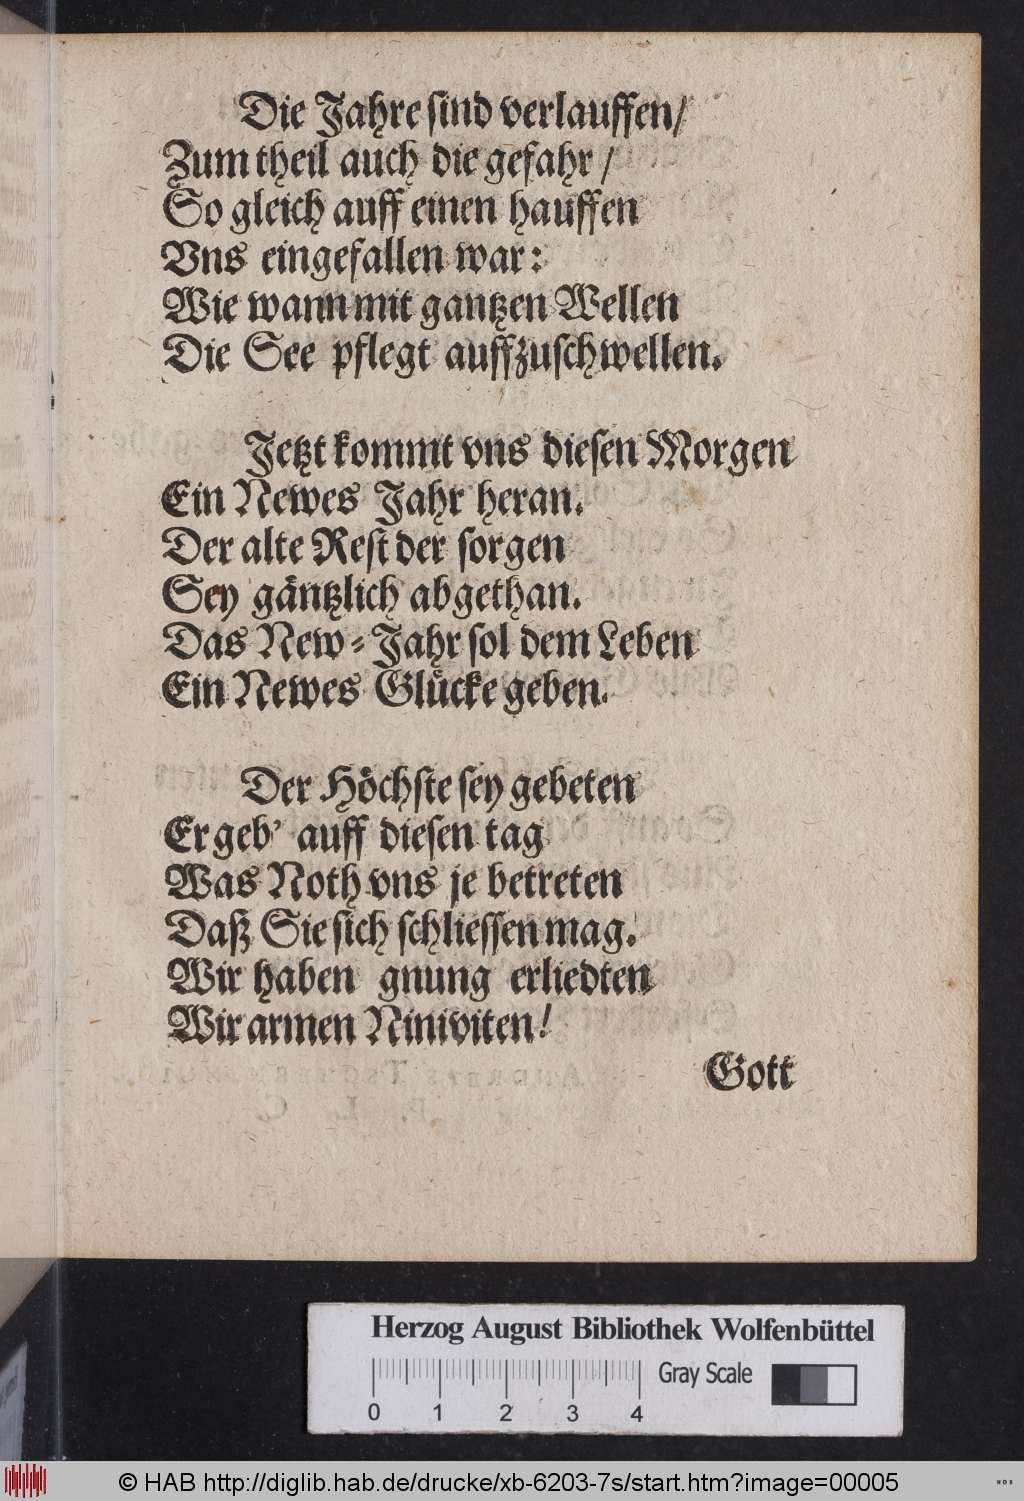 Die Jahre sind verlauffen/
Zum theil auch die gefahr/
So gleich auff einen hauffen
Vns eingefallen war:
Wie wann mit gantzen Wellen
Die See pflegt auffzuschwellen.
Jetzt kommt vns diesen Morgen
Ein Newes Jahr heran.
Der alte Rest der sorgen
Sey gäntzlich abgethan.
Das New-Jahr sol dem Leben
Ein Newes Glücke geben.
Der Höchste sey gebeten
Er geb' auff diesen tag
Was Noth vns je betreten
Daß Sie sich schliessen mag.
Wir haben gnung erliedten
Wir armen Niniviten!
Gott
Herzog August Bibliothek Wolfenbüttel
Gray Scale
0 1 2 3 4
© HAB http://diglib.hab.de/drucke/xb-6203-7s/start.htm?image=00005